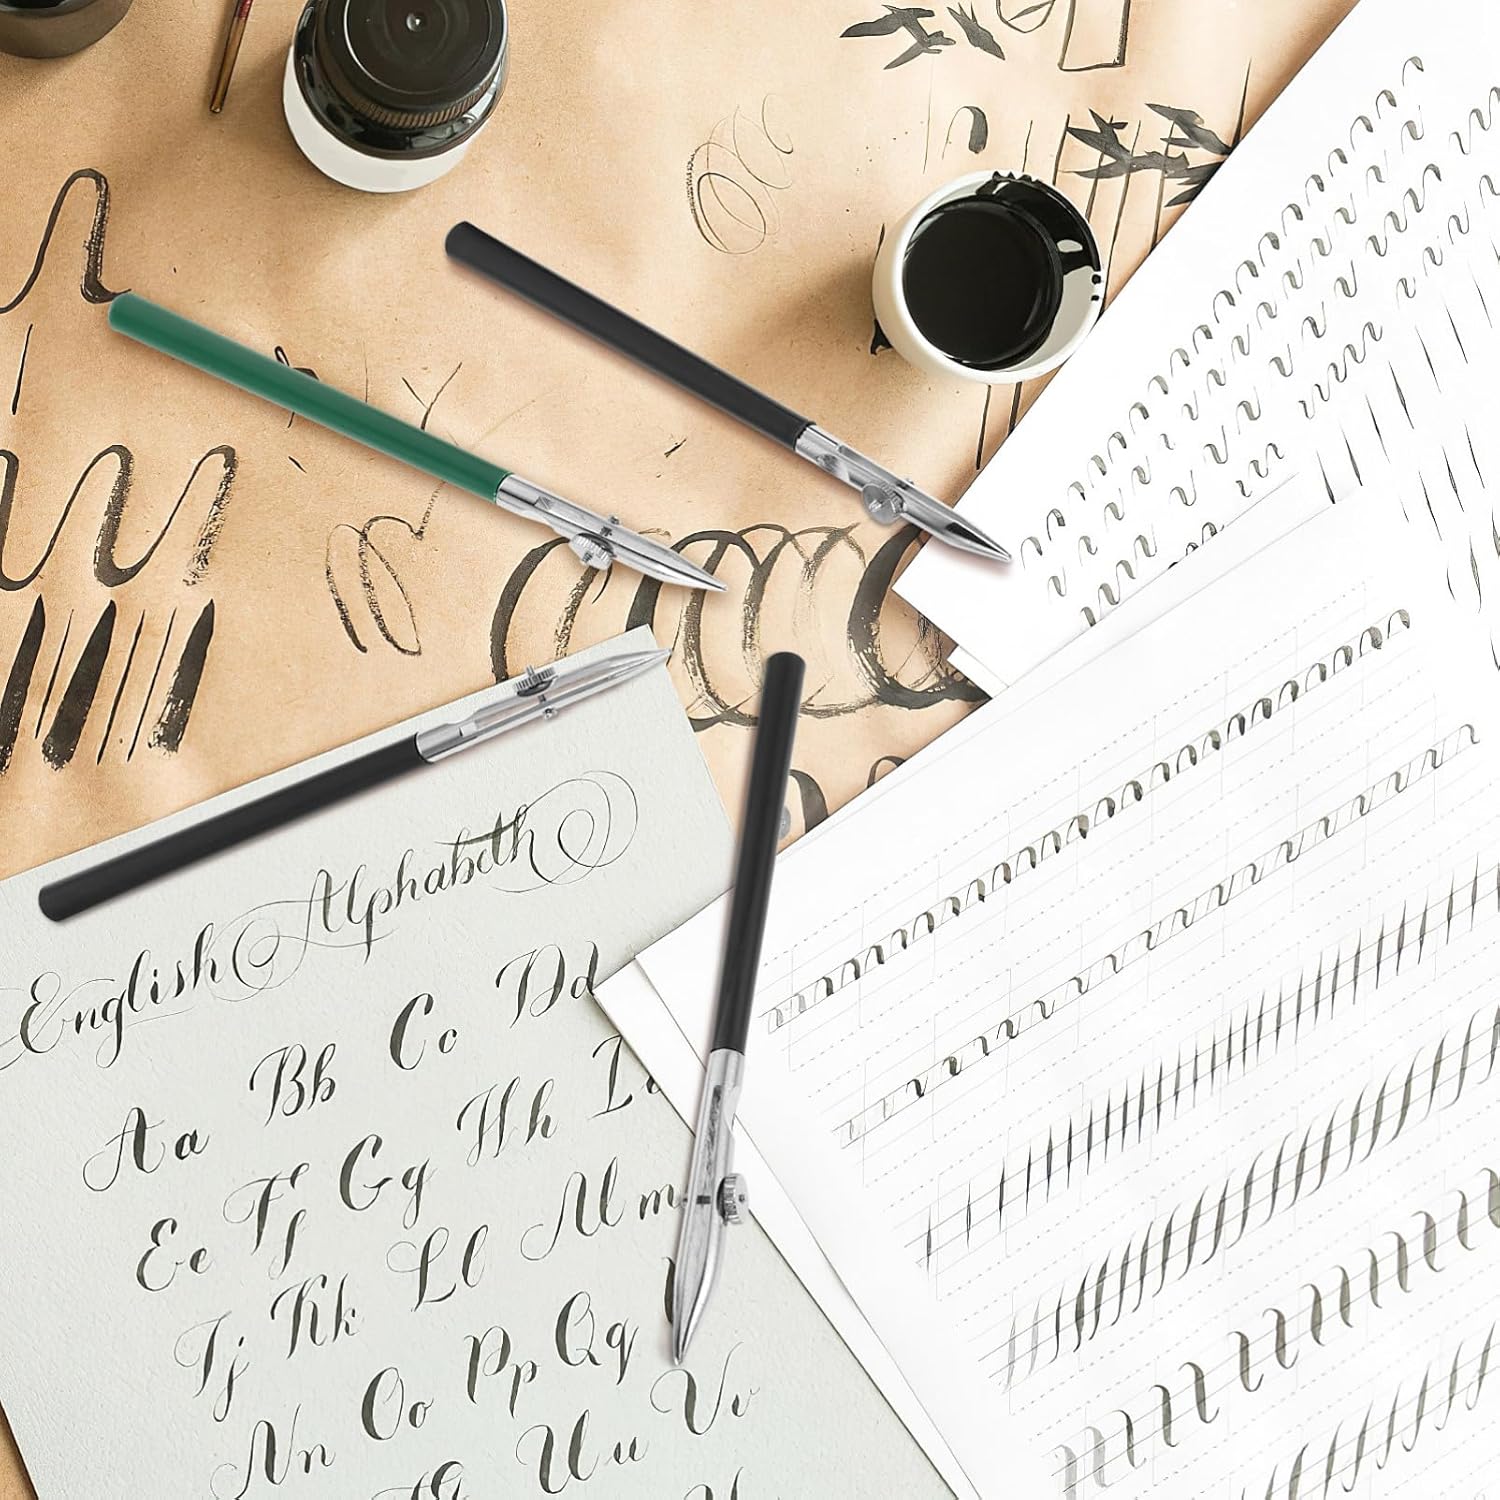 English Alphabeth
Aa Bb Cc Dd
Ee Ff Gg Hh I
Jj Kk Ll Mm
Nn Oo Pp Qq
Uu Vv